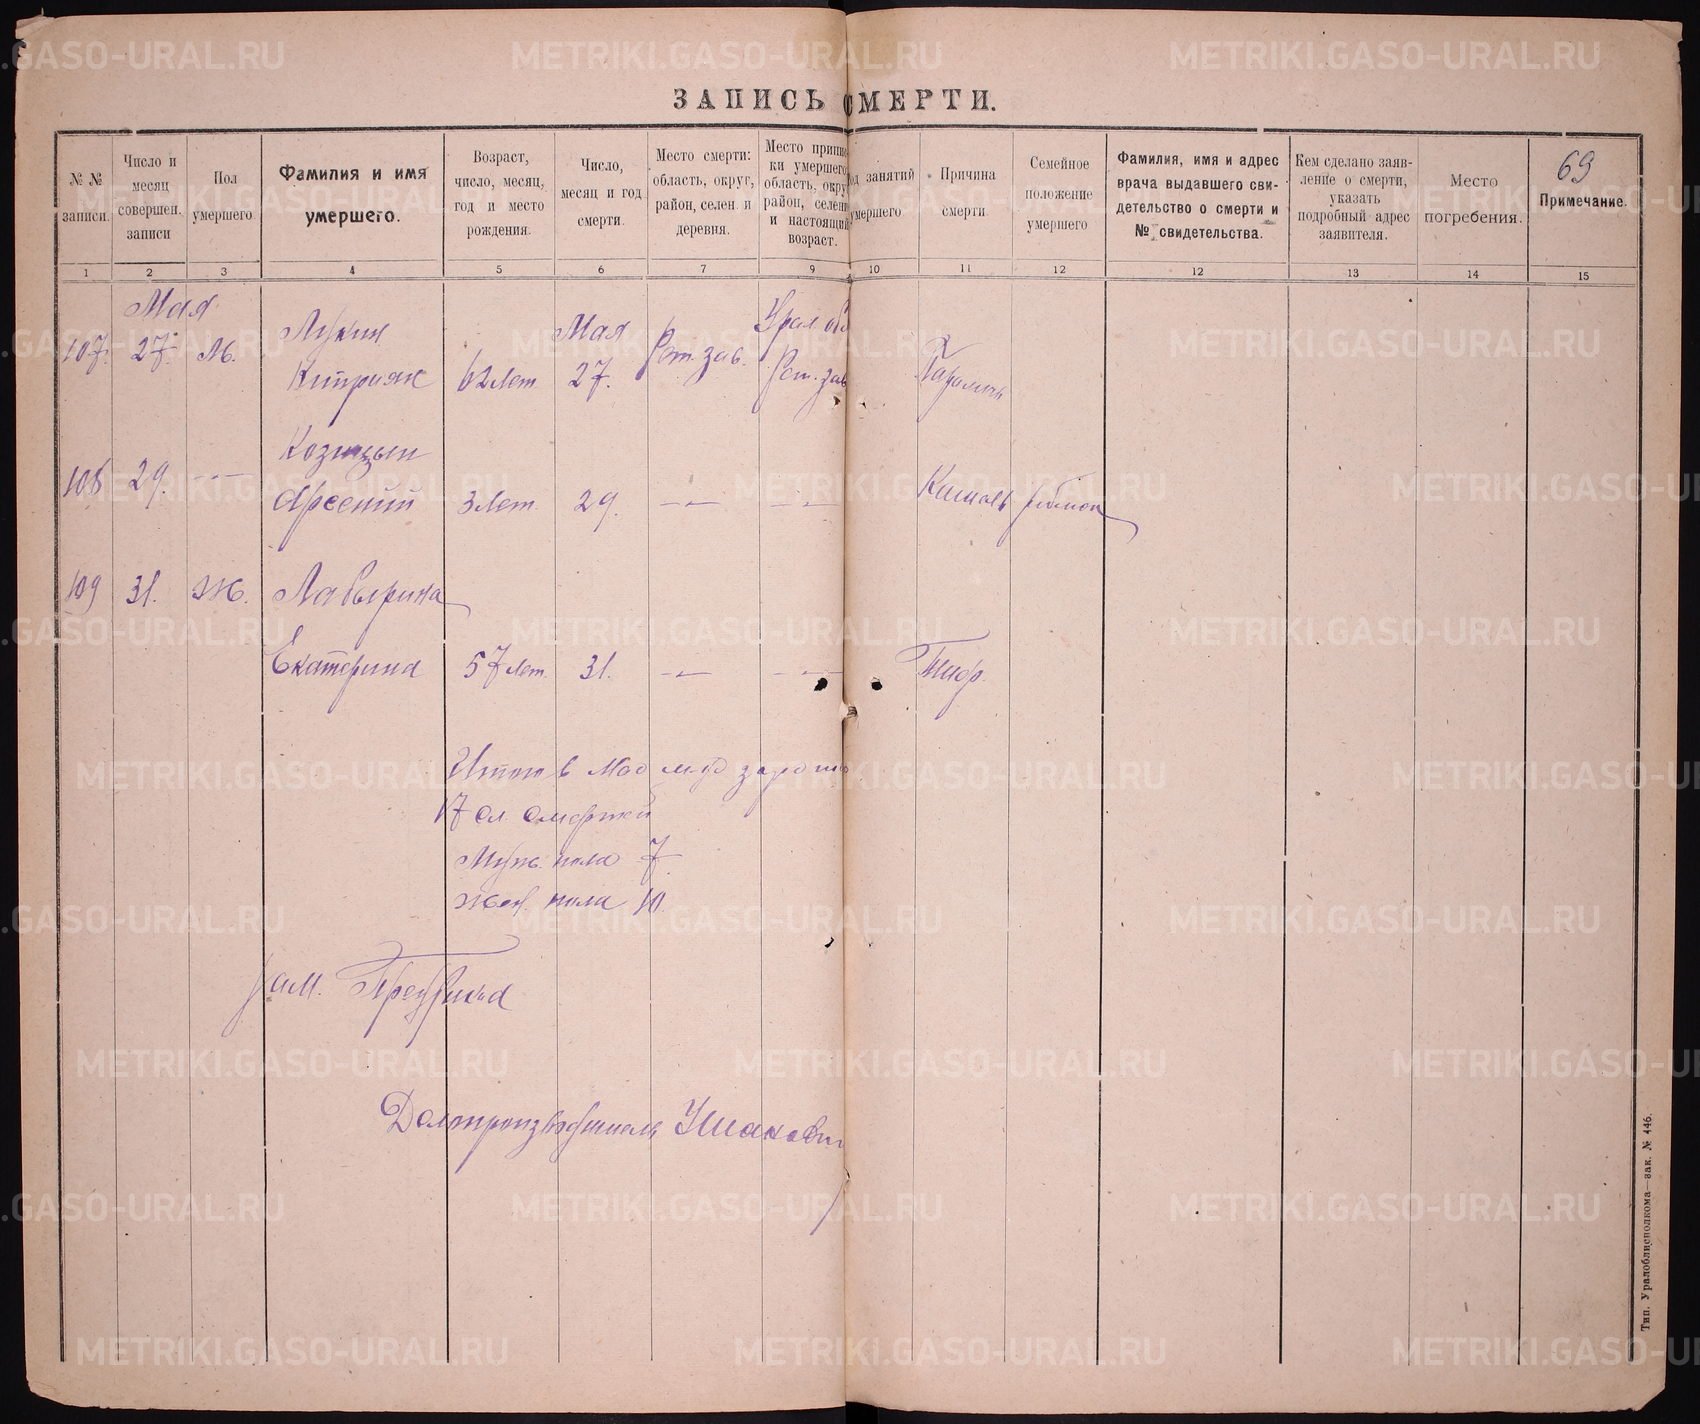 ЗАПИСЬ СМЕРТИ.
69
№ № записи.
Число и месяц совершен. записи
Пол умершего
Фамилия и имя умершего.
Возраст, число, месяц, год и место рождения.
Число, месяц и год смерти.
Место смерти: область, округ, район, селен. и деревня.
Место припис- ки умершего область, окру район, селени и настоящий возраст.
од занятий умершего
Причина смерти
Семейное положение умершего
Фамилия, имя и адрес врача выдавшего сви- детельство о смерти и № свидетельства.
Кем сделано заяв- ление о смерти, указать подробный адрес заявителя.
Место погребения.
Примечание.
1 2 3 4 5 6 7 9 10 11 12 12 13 14 15
Мая
Лукин Мая Урал об
107. 27. М. Рет. зав.
Киприян 62 лет 27. Рет. зав
Козицын
108 29. —
Арсений 3 лет 29. — —
109 31. Ж. Лавырина
Екатерина 57 лет. 31. — — Тиф.
Итого в Мае м-це
17 сл. смертей
Муж. пола 7
Жен. пола 10.
Делопроизводитель
Тип. Уралоблисполкома—зак. № 446.
METRIKI.GASO-URAL.RU